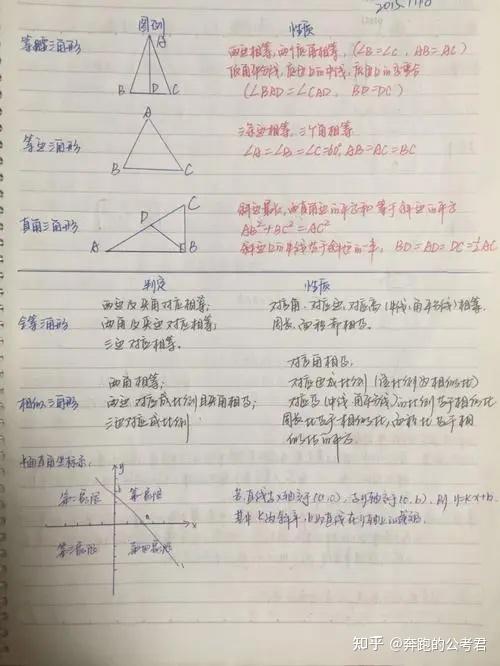 2015.11.10
图例 性质
等腰三角形
A
B D C
两边相等,两个底角相等,(∠B=∠C, AB=AC)
顶角平分线,底边上的中线,底边上的高重合
(∠BAD=∠CAD, BD=DC)
等边三角形
A
B C
三条边相等,三个角相等
∠A=∠B=∠C=60°, AB=AC=BC
直角三角形
C
D
A B
斜边最长,两直角边的平方和等于斜边的平方
AB²+BC²=AC²
斜边上的中线等于斜边的一半, BD=AD=DC=½AC
判定 性质
全等三角形
两边及夹角对应相等;
两角及夹边对应相等;
三边对应相等.
对应角、对应边、对应高(中线、角平分线)相等.
周长、面积都相等.
相似三角形
两角相等;
两边对应成比例且夹角相等;
三边对应成比例
对应角相等;
对应边成比例(该比例为相似比)
对应高(中线、角平分线)的比例等于相似比
周长比等于相似比,面积比等于相
似比的平方.
平面直角坐标系:
y
第二象限 第一象限
x
第三象限 第四象限
若直线与x轴交于(a,0),与y轴交于(0,b),则 y=kx+b.
其中k为斜率,b为直线在y轴上的截距.
知乎 @奔跑的公考君